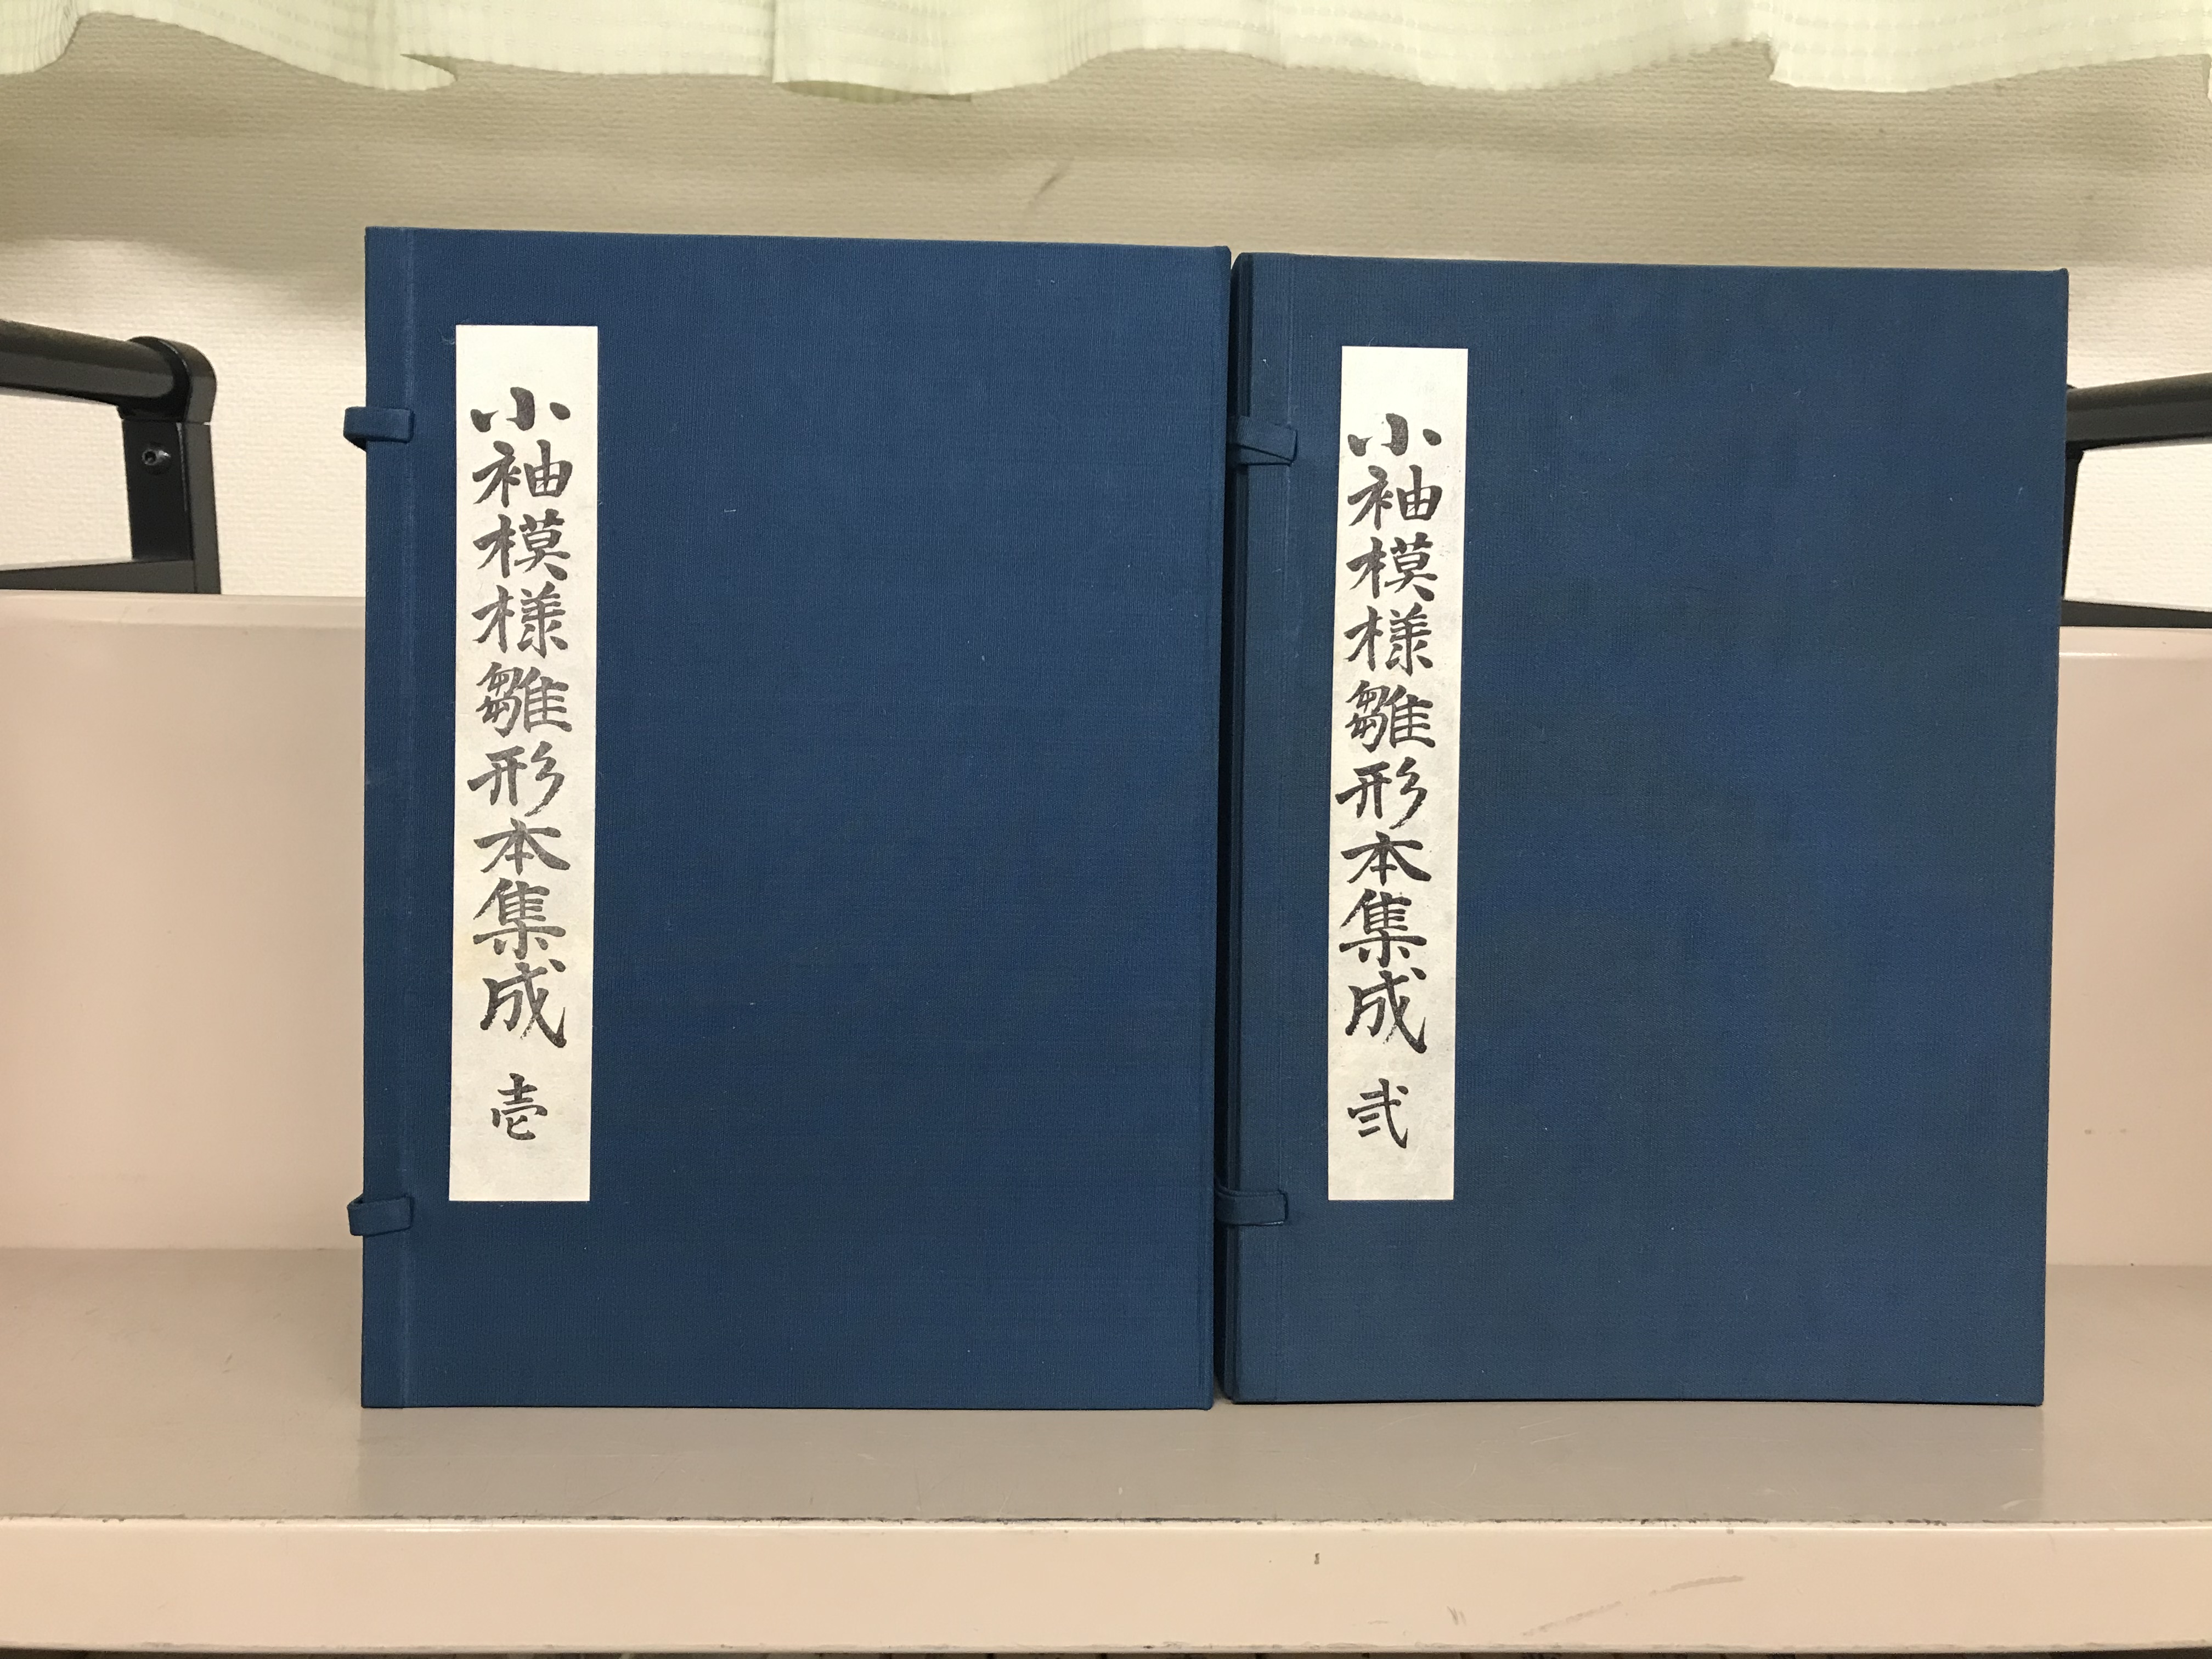 小袖模様雛形本集成 壱
小袖模様雛形本集成 弐